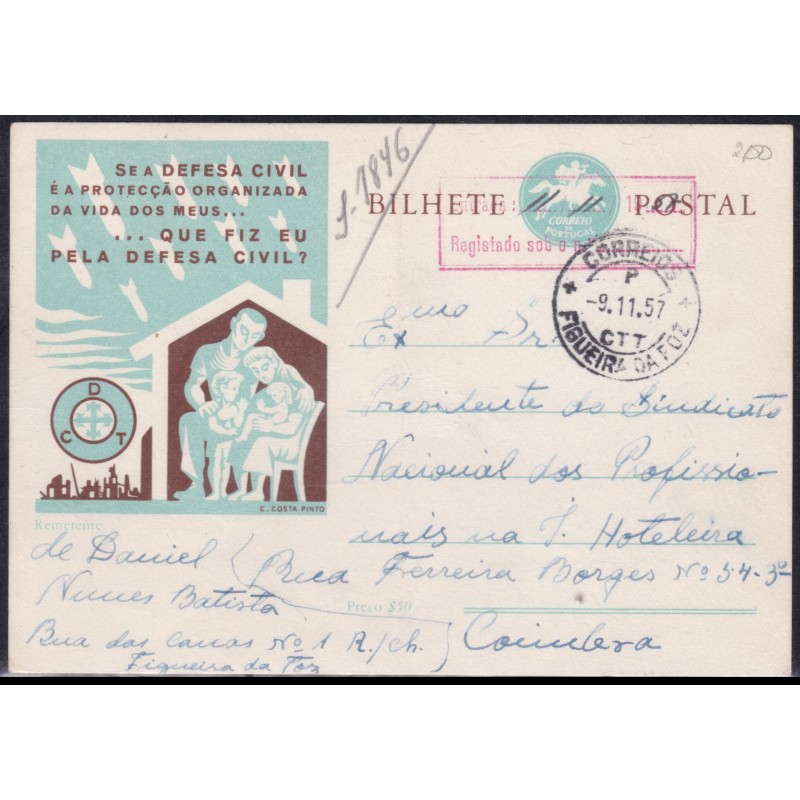 SE A DEFESA CIVIL
É A PROTECÇÃO ORGANIZADA
DA VIDA DOS MEUS...
... QUE FIZ EU
PELA DEFESA CIVIL?
D
C T
C. COSTA PINTO
1846
200
BILHETE POSTAL
CORREIO
DE
PORTUGAL
11 11
Registado sob o n
CORREIOS
P
-9.11.57
CTT
FIGUEIRA DA FOZ
Exmo Sr
Presidente do Sindicato
Nacional dos Profissio-
nais na I. Hoteleira
Rua Ferreira Borges Nº 54-3º
Coimbra
Remetente
de Daniel
Nunes Batista
Preço $50
Rua das Canas Nº 1 R./ch.
Figueira da Foz